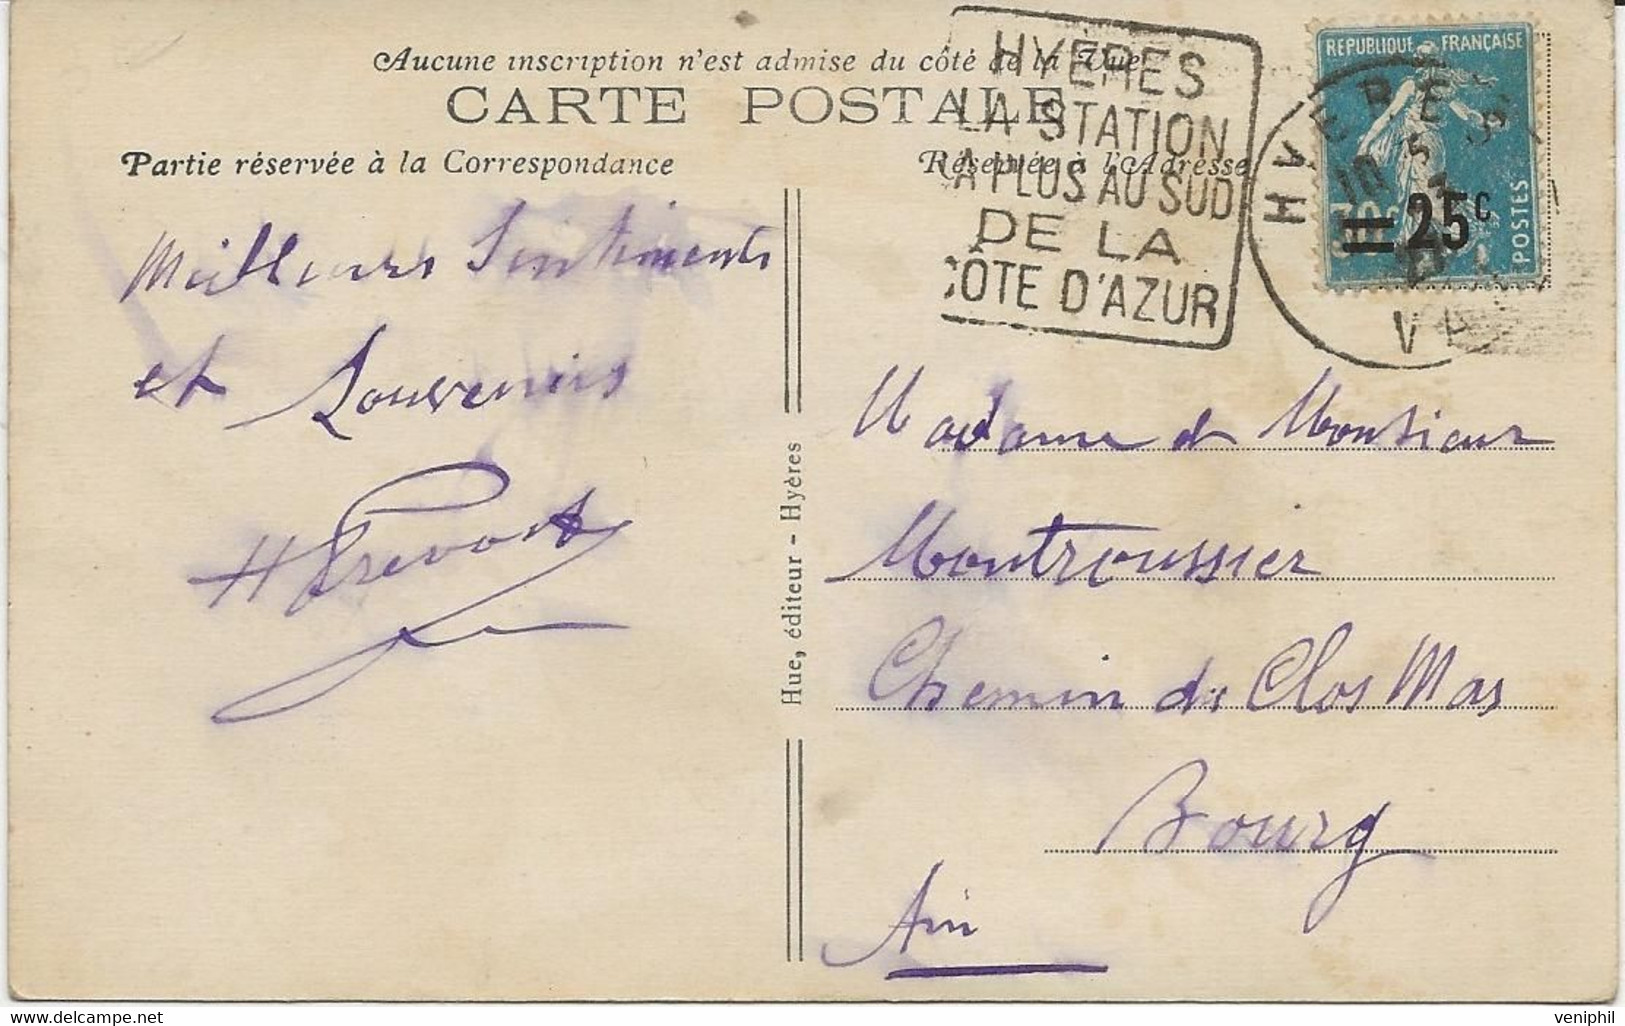 Aucune inscription n'est admise du côté de la Vue
CARTE POSTALE
Partie réservée à la Correspondance
Réservée à l'Adresse
HYERES
LA STATION
LA PLUS AU SUD
DE LA
CÔTE D'AZUR
HYERES
VAR
REPUBLIQUE FRANÇAISE
POSTES
25c
Meilleurs Sentiments
et Souvenirs
H Prevost
Hue, éditeur - Hyères
Madame et Monsieur
Montroussier
Chemin du Clos Mas
Bourg
Ain
veniphil.delcampe.net
veniphil